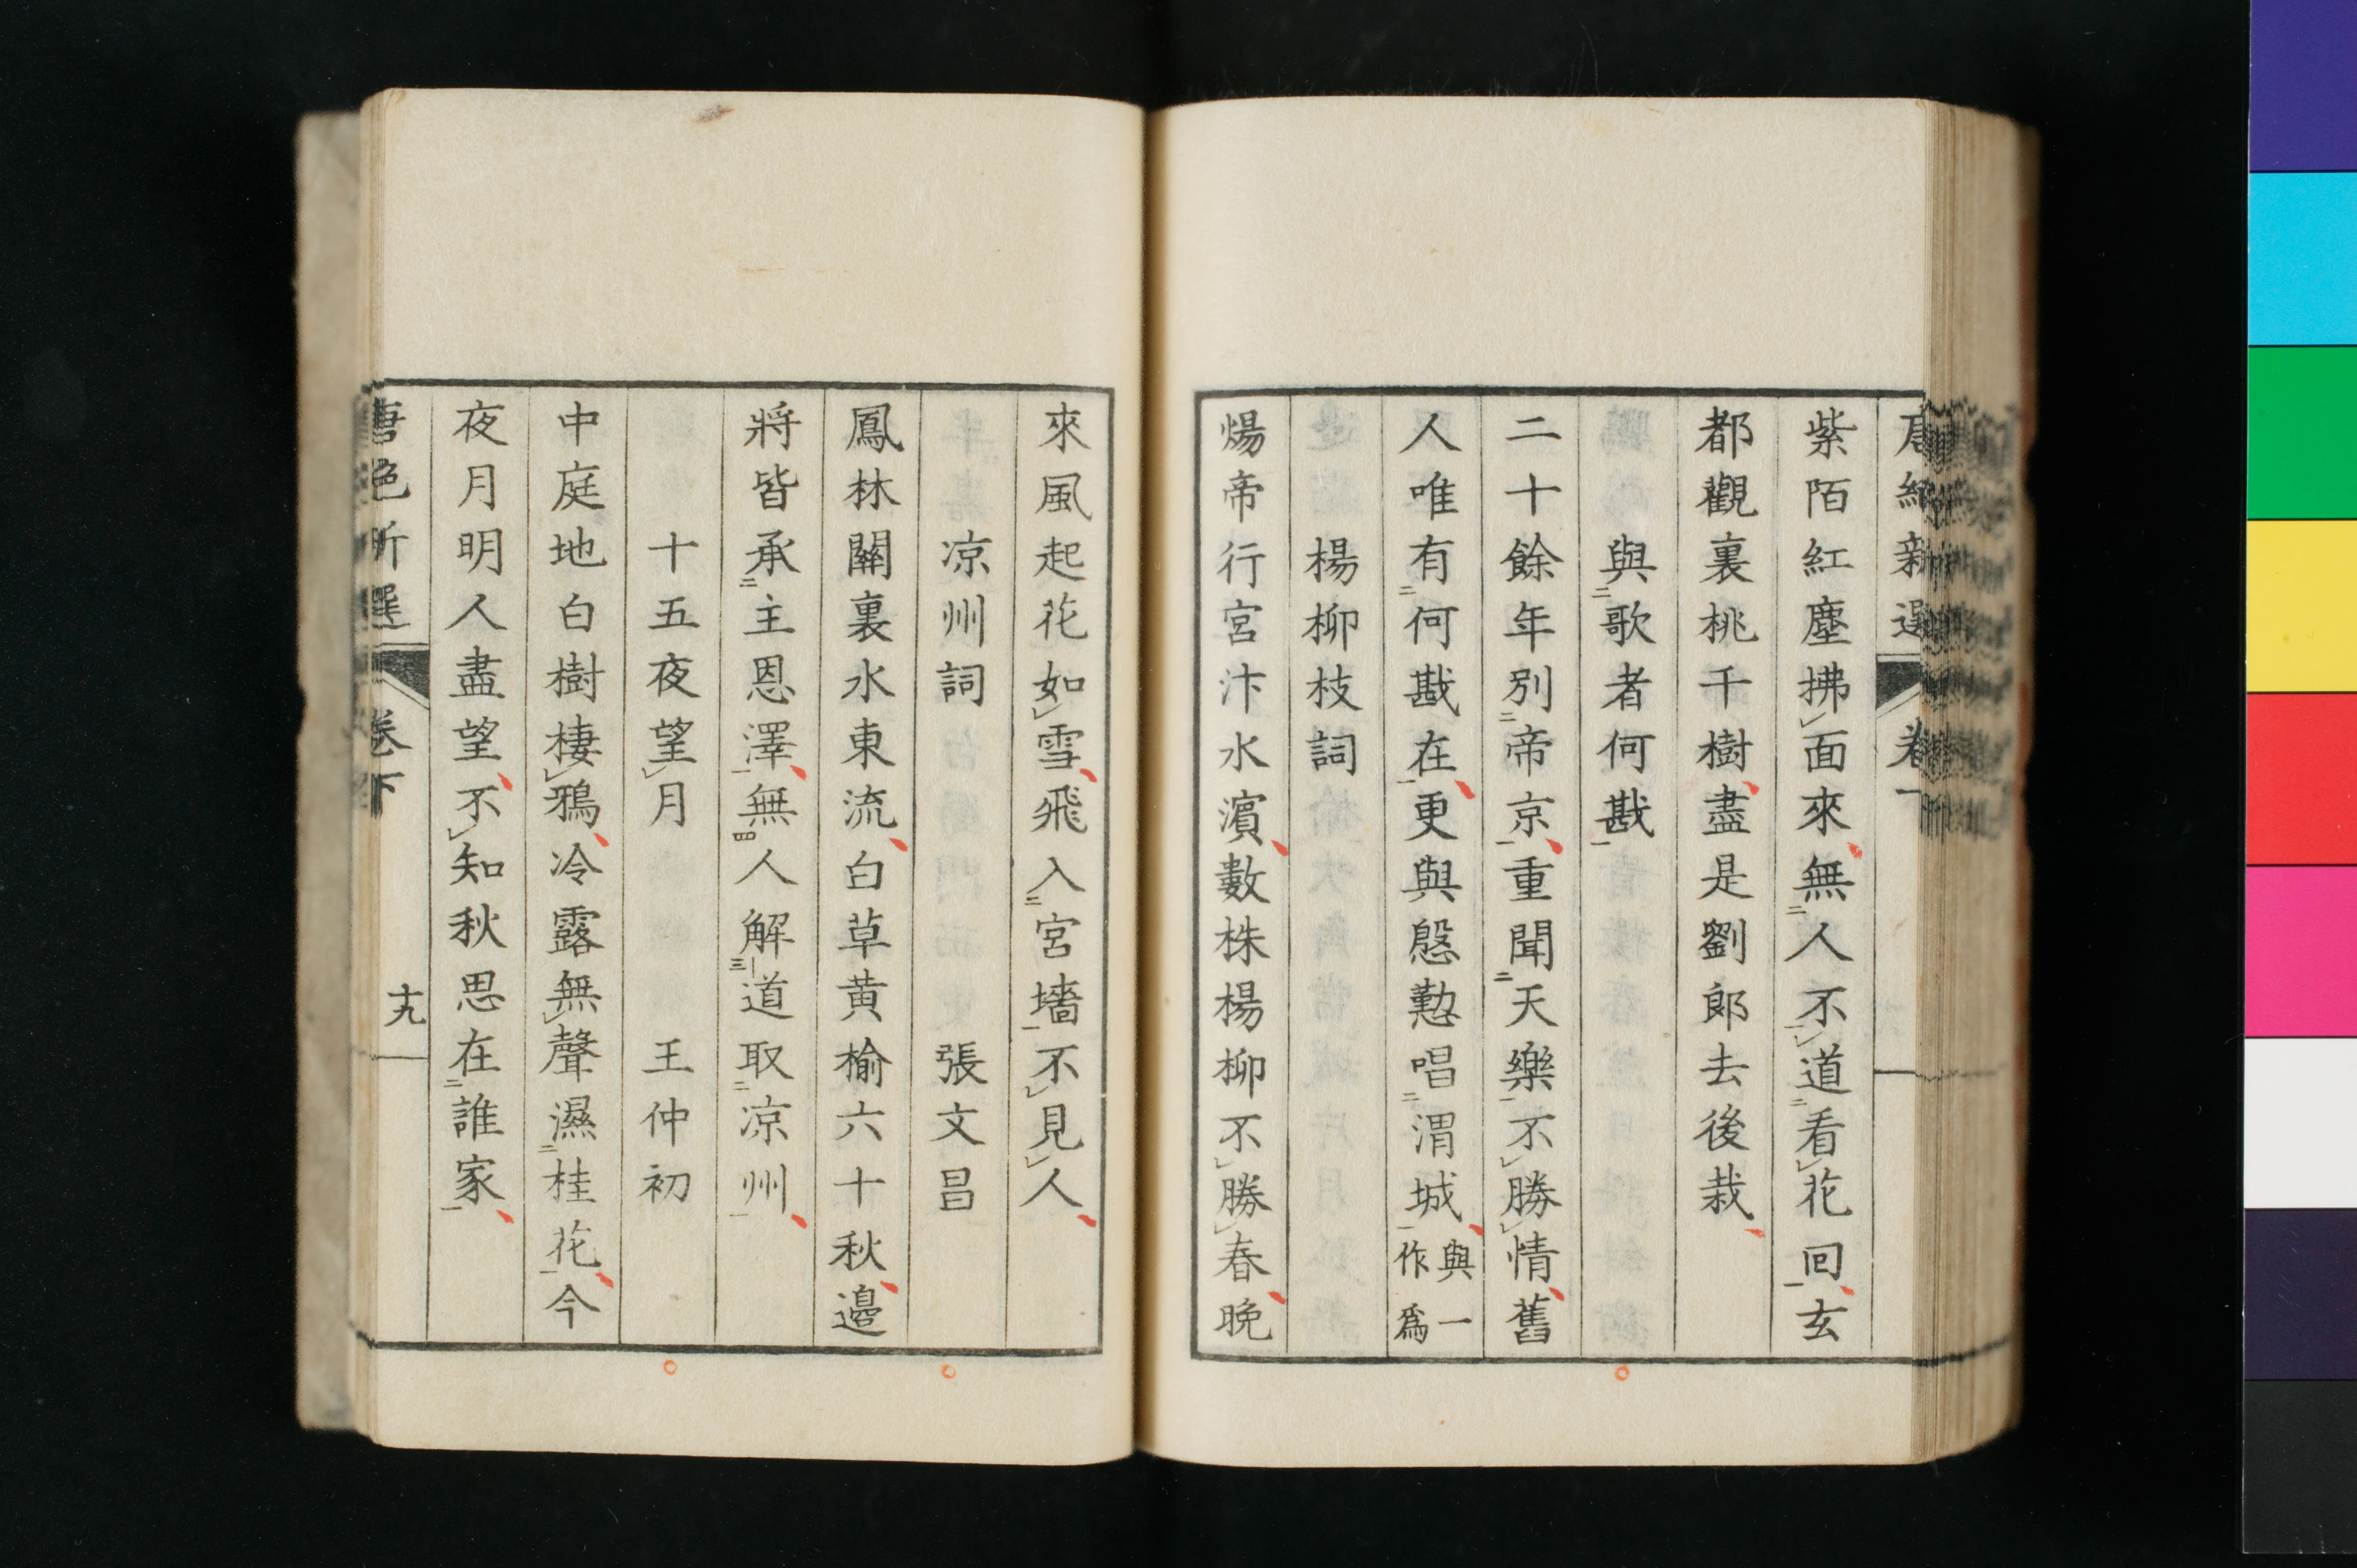 紫陌紅塵拂面來無人不道看花回玄
都觀裏桃千樹盡是劉郎去後栽
與歌者何戡
二十餘年別帝京重聞天樂不勝情舊
人唯有何戡在更與慇懃唱渭城與一作爲
楊柳枝詞
煬帝行宮汴水濱數株楊柳不勝春晚
來風起花如雪飛入宮墻不見人
凉州詞 張文昌
鳳林關裏水東流白草黄榆六十秋邊
將皆承主恩澤無人解道取凉州
十五夜望月 王仲初
中庭地白樹棲鴉冷露無聲濕桂花今
夜月明人盡望不知秋思在誰家
卷下 十九